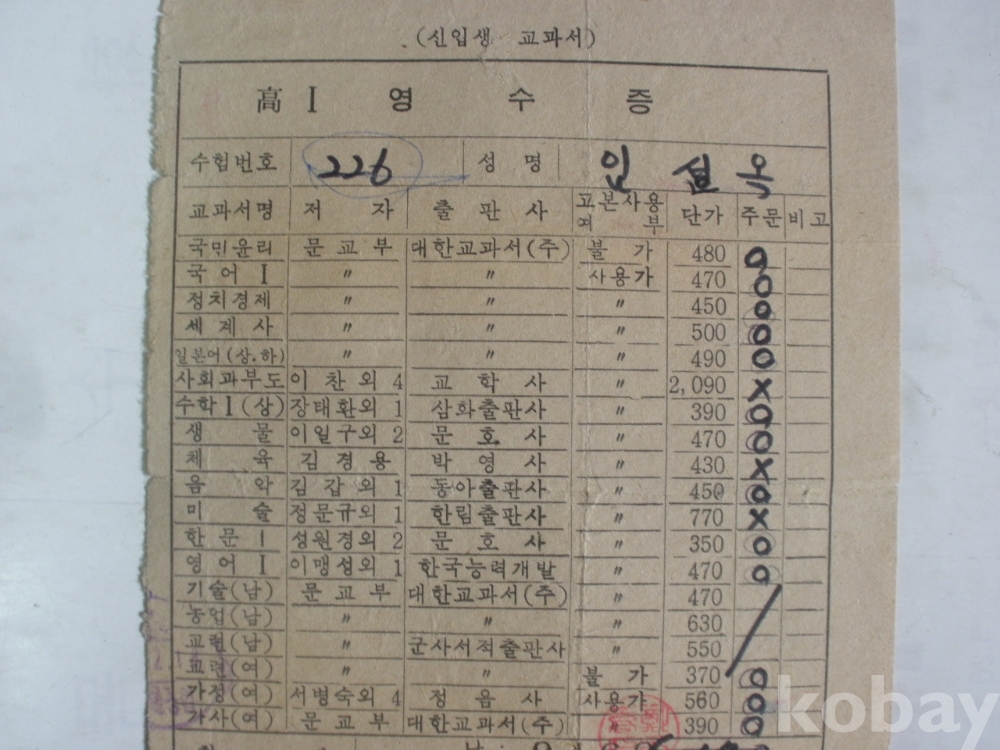 (신입생 교과서)
高 I 영 수 증
수험번호 226 성 명 인 섭 옥
교과서명 저 자 출 판 사 고본사용여 부 단가 주문 비고
국민윤리 문교부 대한교과서(주) 불 가 480 O
국 어 I 〃 〃 사용가 470 O
정치경제 〃 〃 〃 450 O
세 계 사 〃 〃 〃 500 O
일본어(상.하) 〃 〃 〃 490 O
사회과부도 이 찬외 4 교 학 사 〃 2,090 X
수학 I (상) 장태환외 1 삼화출판사 〃 390 O
생 물 이일구외 2 문 호 사 〃 470 O
체 육 김 경 용 박 영 사 〃 430 X
음 악 김 갑외 1 동아출판사 〃 450 O
미 술 정문규외 1 한림출판사 〃 770 X
한 문 I 성원경외 2 문 호 사 〃 350 O
영 어 I 이맹성외 1 한국능력개발 〃 470 O
기술(남) 문 교 부 대한교과서(주) 〃 470
농업(남) 〃 〃 〃 630
교련(남) 〃 군사서적출판사 〃 550
교련(여) 〃 〃 불 가 370 O
가정(여) 서병숙외 4 정 음 사 사용가 560 O
가사(여) 문 교 부 대한교과서(주) 〃 390 O
kobay